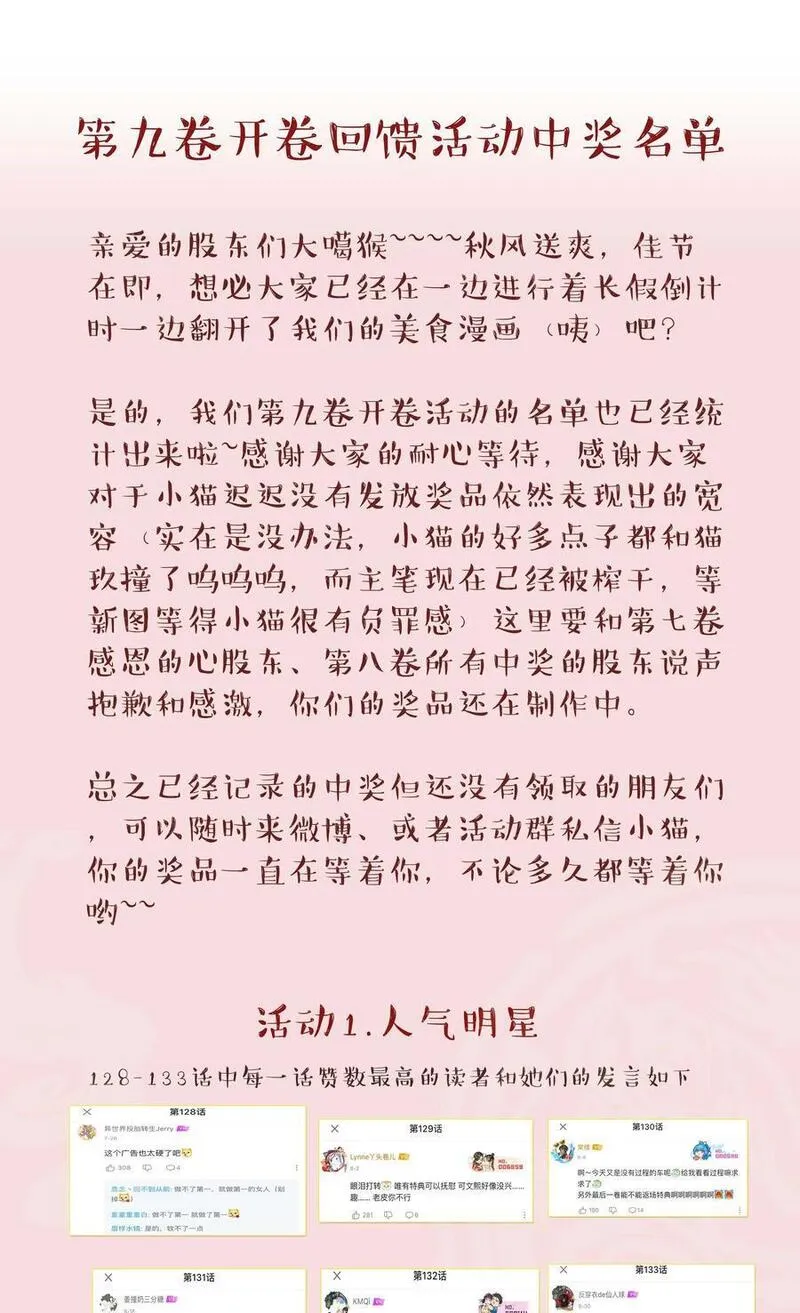 第九卷开卷回馈活动中奖名单
亲爱的股东们大噶猴~~~~秋风送爽，佳节
在即，想必大家已经在一边进行着长假倒计
时一边翻开了我们的美食漫画（咦）吧？
是的，我们第九卷开卷活动的名单也已经统
计出来啦~感谢大家的耐心等待，感谢大家
对于小猫迟迟没有发放奖品依然表现出的宽
容（实在是没办法，小猫的好多点子都和猫
玖撞了呜呜呜，而主笔现在已经被榨干，等
新图等得小猫很有负罪感）这里要和第七卷
感恩的心股东、第八卷所有中奖的股东说声
抱歉和感激，你们的奖品还在制作中。
总之已经记录的中奖但还没有领取的朋友们
，可以随时来微博、或者活动群私信小猫，
你的奖品一直在等着你，不论多久都等着你
哟~~
活动1.人气明星
128-133话中每一话赞数最高的读者和她们的发言如下
第128话
异世界投胎转生Jerry
7-26
这个广告也太硬了吧
308 4
做不了第一，就做第一的女人（别
做不了第一 就做了第一
是的，软不了一点
第129话
Lynne丫头卷儿
8-2
眼泪打转 唯有特典可以抚慰 可文熙好像没兴……
趣…… 老皮你不行
281 6
第130话
常佳
啊~今天又是没有过程的车呢 给我看看过程嘛求
求了
另外最后一卷能不能返场特典啊啊啊啊啊啊
190 14
第131话
姜撞奶三分糖
第132话
KMQi
第133话
反穿衣de仙人球